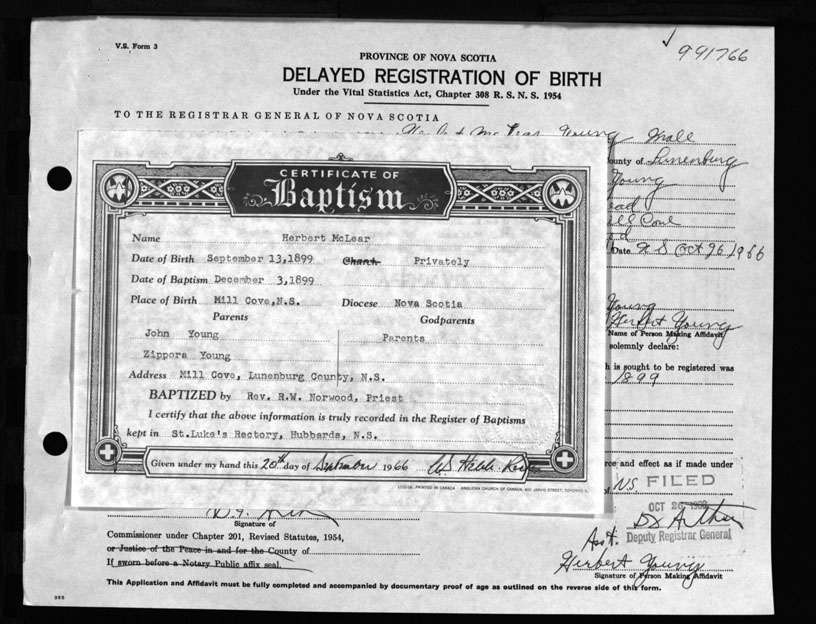 V.S. Form 3
991766
PROVINCE OF NOVA SCOTIA
DELAYED REGISTRATION OF BIRTH
Under the Vital Statistics Act, Chapter 308 R. S. N. S. 1954
TO THE REGISTRAR GENERAL OF NOVA SCOTIA
Young Male
County of Lunenburg
Young
Cove
Date N S Oct 26/1966
CERTIFICATE OF
Baptism
Name Herbert McLear
Date of Birth September 13,1899 Church Privately
Date of Baptism December 3,1899
Place of Birth Mill Cove,N.S. Diocese Nova Scotia
Parents Godparents
John Young Parents
Zippora Young
Address Mill Cove, Lunenburg County, N.S.
BAPTIZED by Rev. R.W. Norwood, Priest
I certify that the above information is truly recorded in the Register of Baptisms
kept in St.Luke's Rectory, Hubbards, N.S.
Given under my hand this 20th day of September 1966
PRINTED IN CANADA ANGLICAN CHURCH OF CANADA, 600 JARVIS STREET, TORONTO
Young
Herbert Young
Name of Person Making Affidavit
solemnly declare:
is sought to be registered was
1899
and effect as if made under
NS FILED
OCT 26
Deputy Registrar General
Asst.
Signature of
Commissioner under Chapter 201, Revised Statutes, 1954,
or Justice of the Peace in and for the County of
If sworn before a Notary Public affix seal.
Herbert Young
Signature of Person Making Affidavit
This Application and Affidavit must be fully completed and accompanied by documentary proof of age as outlined on the reverse side of this form.